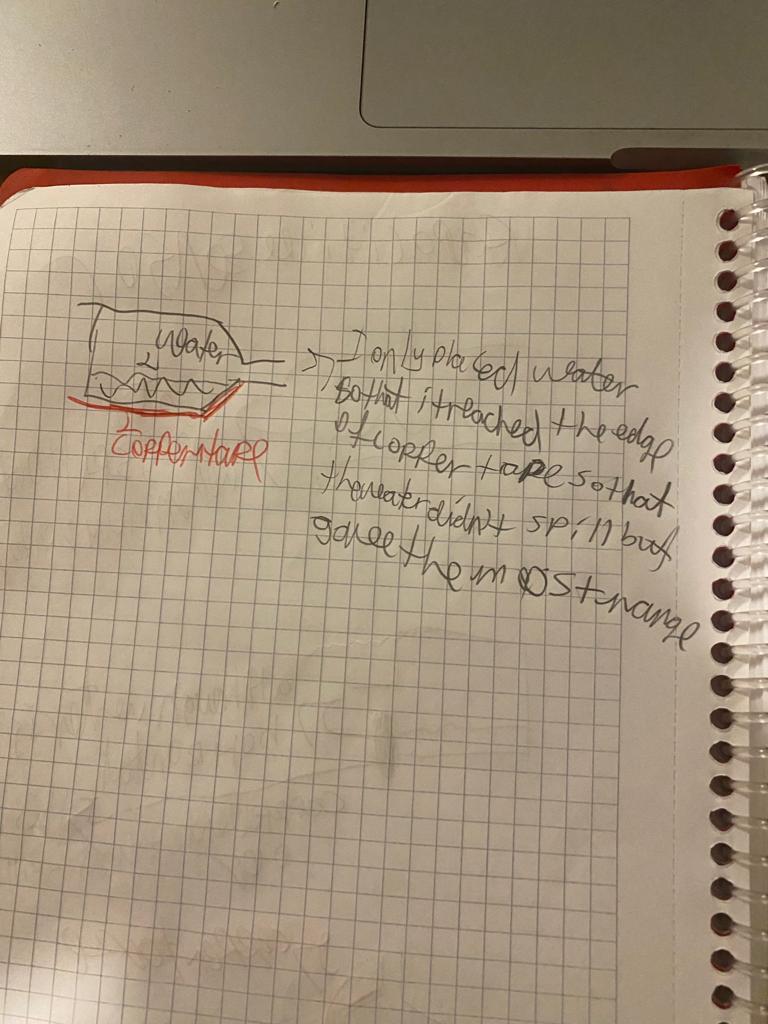 water
Coppertape
I only placed water
so that it reached the edge
of copper tape so that
the water didn't spill but
gave the most range